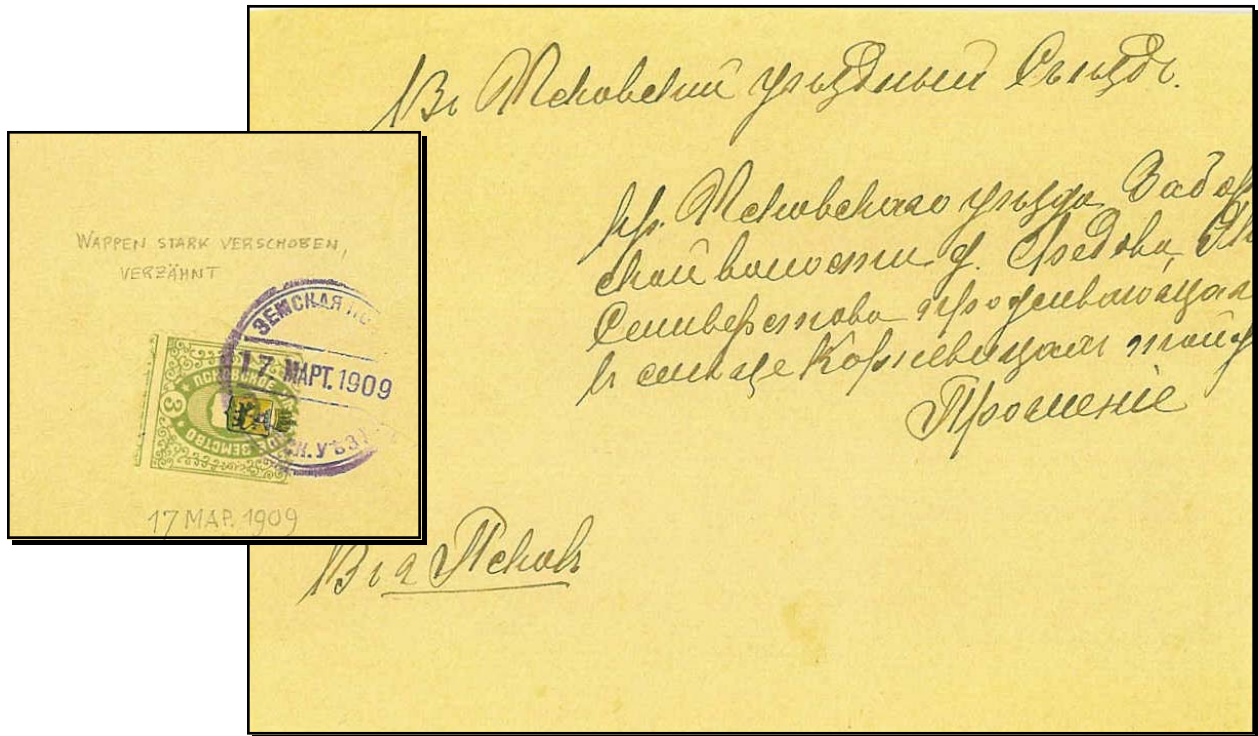 Въ Псковскій уѣздный Съѣздъ.
кр. Псковскаго уѣзда Задор
ской волости д.
Селиверстова проживающая
въ сельце
Прошеніе
Въ г Псковъ
WAPPEN STARK VERSCHOBEN,
VERZÄHNT
ЗЕМСКАЯ ПО
17 МАРТ. 1909
СК. УѢЗД
ПСКОВСКОЕ
ЗЕМСТВО
3
17 МАР. 1909